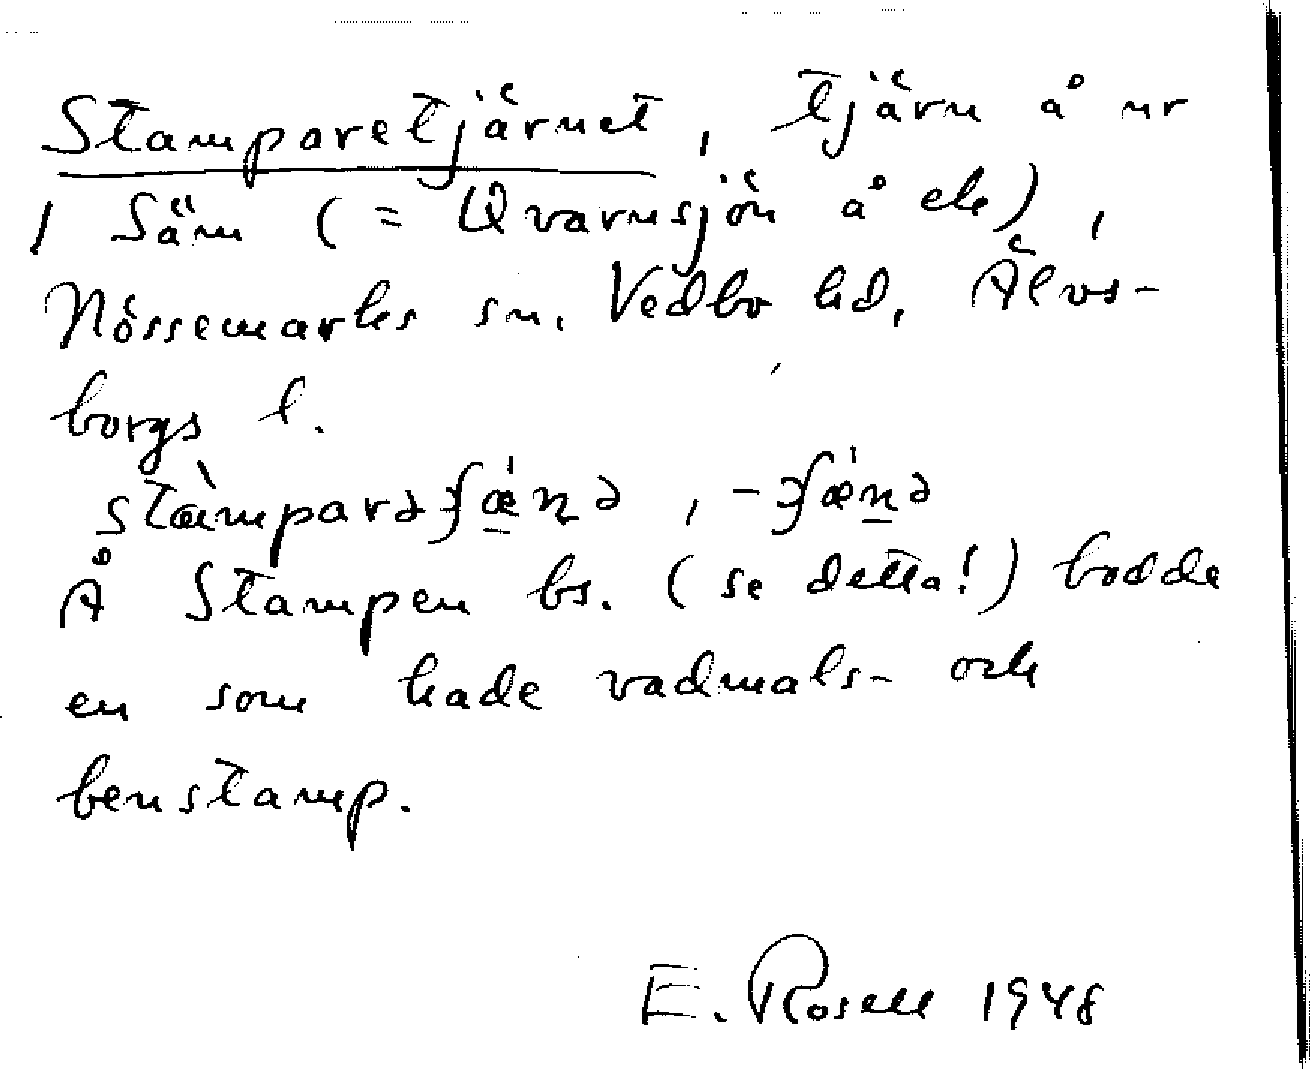 Stamparetjärnet, tjärn å nr
1 Säm (= Qvarnsjön å ek),
Nössemarks sn. Vedbo hd, Älvs-
borgs l.
stàmparəʃǽ̱nə, -ʃǽṉə
Å Stampen bs. (se detta!) bodde
en som hade vadmals- och
benstamp.
E. Rosell 1948